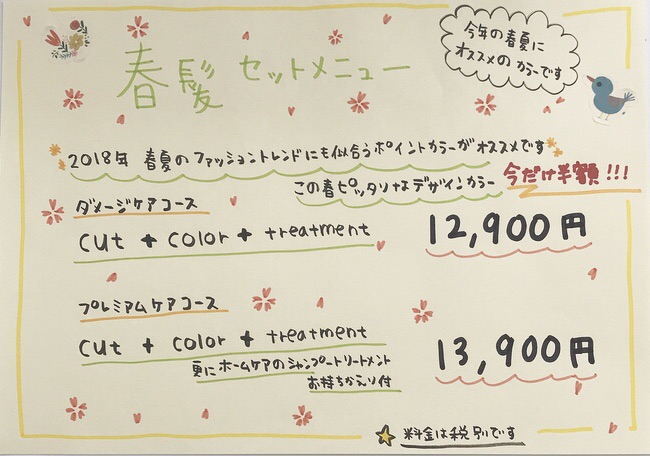 今年の春夏に
オススメの カラーです
春髪 セットメニュー
2018年 春夏のファッショントレンドにも似合うポイントカラーがオススメです
この春ピッタリなデザインカラー 今だけ半額!!!
ダメージケアコース
cut + color + treatment 12,900円
プレミアムケアコース
cut + color + treatment 13,900円
更にホームケアのシャンプートリートメント
お持ちかえり付
料金は税別です